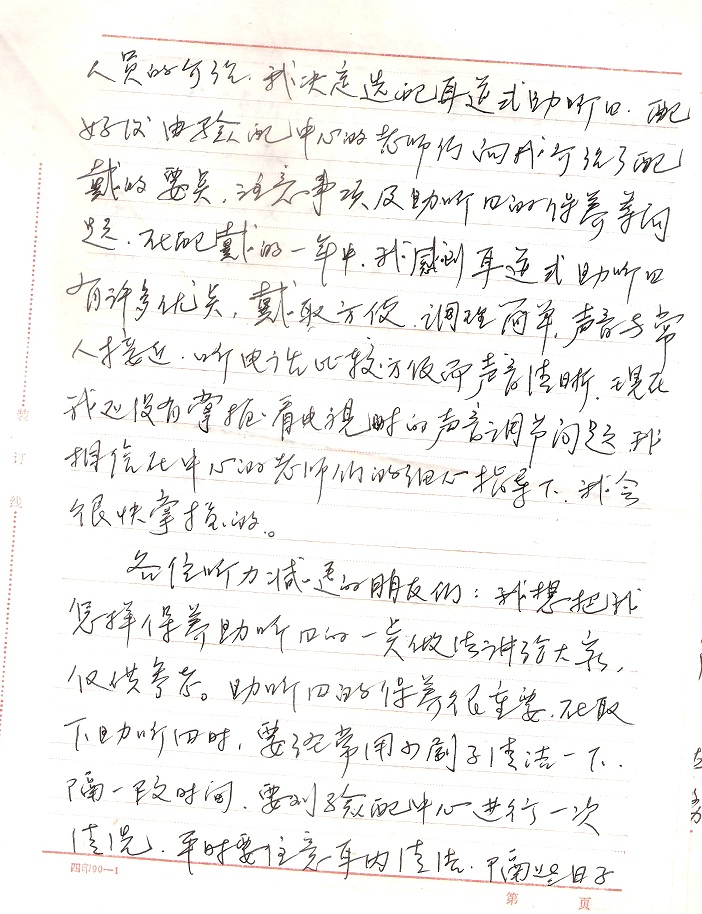 人员的介绍，我决定选配耳道式助听口．配
好后由验配中心的老师们向我介绍了配
戴的要点，注意事项及助听口的保养等问
题．在配戴的一年中，我感到耳道式助听口
有许多优点，戴取方便，调理简单，声音与常
人接近．听电话比较方便而声音清晰．现在
我还没有掌握看电视时的声音调节问题 我
相信在中心的老师们的细心指导下，我会
很快掌握的。
各位听力减退的朋友们：我想把我
怎样保养助听口的一点做法讲给大家，
仅供参考。助听口的保养很重要．在取
下助听口时，要经常用小刷子清洁一下．
隔一段时间，要到验配中心进行一次
清洗．平时要注意耳内清洁．隔些日子
装
订
线
四印90—1
第 页